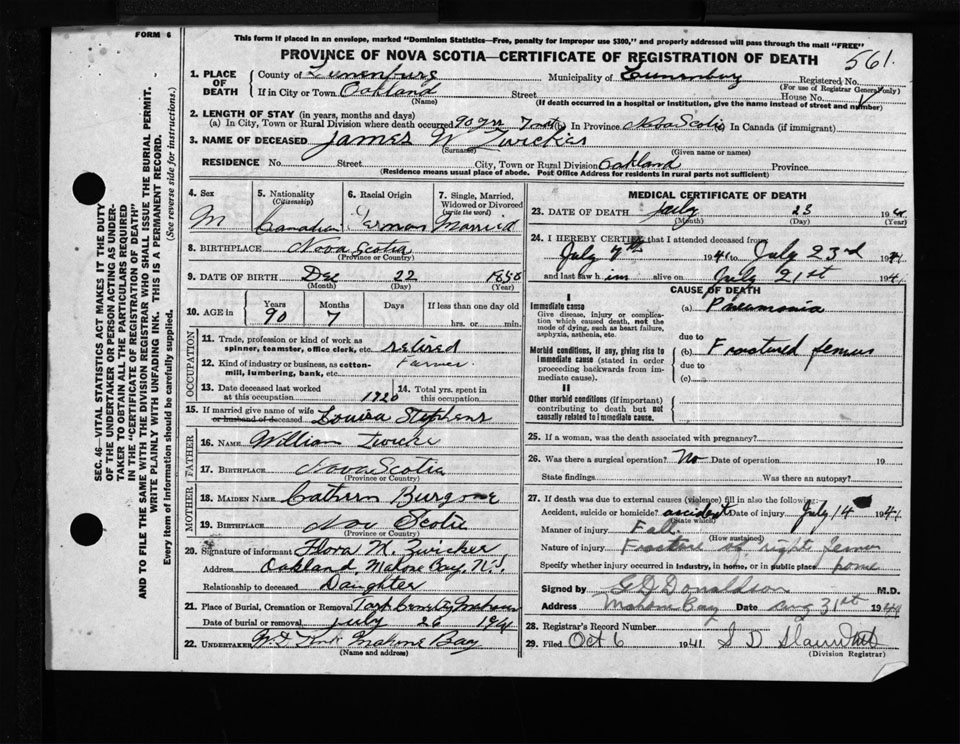 FORM 6
This form if placed in an envelope, marked "Dominion Statistics—Free, penalty for improper use $300," and properly addressed will pass through the mail "FREE"
PROVINCE OF NOVA SCOTIA—CERTIFICATE OF REGISTRATION OF DEATH 561.
1. PLACE OF DEATH
County of Lunenburg Municipality of Lunenburg Registered No.
(For use of Registrar General only)
If in City or Town Oakland Street House No.
(Name) (If death occurred in a hospital or institution, give the name instead of street and number)
2. LENGTH OF STAY (in years, months and days)
(a) In City, Town or Rural Division where death occurred 90 yrs 7 mth (b) In Province Nova Scotia (c) In Canada (if immigrant)
3. NAME OF DECEASED James W Zwicker
(Surname) (Given name or names)
RESIDENCE No. Street City, Town or Rural Division Oakland Province
(Residence means usual place of abode. Post Office Address for residents in rural parts not sufficient)
4. Sex M
5. Nationality (Citizenship) Canadian
6. Racial Origin German
7. Single, Married, Widowed or Divorced (write the word) Married
8. BIRTHPLACE Nova Scotia
(Province or Country)
9. DATE OF BIRTH Dec 22 1850
(Month) (Day) (Year)
10. AGE in Years 90 Months 7 Days If less than one day old hrs. or min.
OCCUPATION
11. Trade, profession or kind of work as spinner, teamster, office clerk, etc. retired
12. Kind of industry or business, as cotton-mill, lumbering, bank, etc. Farmer
13. Date deceased last worked at this occupation 1920
14. Total yrs. spent in this occupation
15. If married give name of wife or husband of deceased Louisa Stephens
FATHER
16. Name William Zwicker
17. Birthplace Nova Scotia
(Province or Country)
MOTHER
18. MAIDEN NAME Cathern Burgone
19. BIRTHPLACE Nov Scotia
(Province or Country)
20. Signature of informant Flora M. Zwicker
Address Oakland, Mahone Bay, N.S.
Relationship to deceased Daughter
21. Place of Burial, Cremation or Removal
Date of burial or removal July 26 1941
22. UNDERTAKER Mahone Bay
(Name and address)
MEDICAL CERTIFICATE OF DEATH
23. DATE OF DEATH July 23 1941
(Month) (Day) (Year)
24. I HEREBY CERTIFY that I attended deceased from
July 7th 1941 to July 23rd 1941
and last saw him alive on July 21st 1941
CAUSE OF DEATH
I
Immediate cause
Give disease, injury or complication which caused death, not the mode of dying, such as heart failure, asphyxia, asthenia, etc.
(a) Pneumonia
due to
Morbid conditions, if any, giving rise to immediate cause (stated in order proceeding backwards from immediate cause).
(b) Fractured femur
due to
(c)
II
Other morbid conditions (if important) contributing to death but not causally related to immediate cause.
25. If a woman, was the death associated with pregnancy?
26. Was there a surgical operation? No Date of operation 19
State findings Was there an autopsy?
27. If death was due to external causes (violence) fill in also the following:
Accident, suicide or homicide? accident Date of injury July 14 1941
(State which)
Manner of injury Fall
(How sustained)
Nature of injury Fracture of right femur
Specify whether injury occurred in industry, in home, or in public place home
Signed by G D Donaldson M.D.
Address Mahone Bay Date Aug 31st 1941
28. Registrar's Record Number
29. Filed Oct 6 1941
(Division Registrar)
SEC. 46—VITAL STATISTICS ACT MAKES IT THE DUTY
OF THE UNDERTAKER OR PERSON ACTING AS UNDER-
TAKER TO OBTAIN ALL THE PARTICULARS REQUIRED
IN THE "CERTIFICATE OF REGISTRATION OF DEATH"
AND TO FILE THE SAME WITH THE DIVISION REGISTRAR WHO SHALL ISSUE THE BURIAL PERMIT.
WRITE PLAINLY WITH UNFADING INK. THIS IS A PERMANENT RECORD.
Every item of information should be carefully supplied. (See reverse side for instructions.)